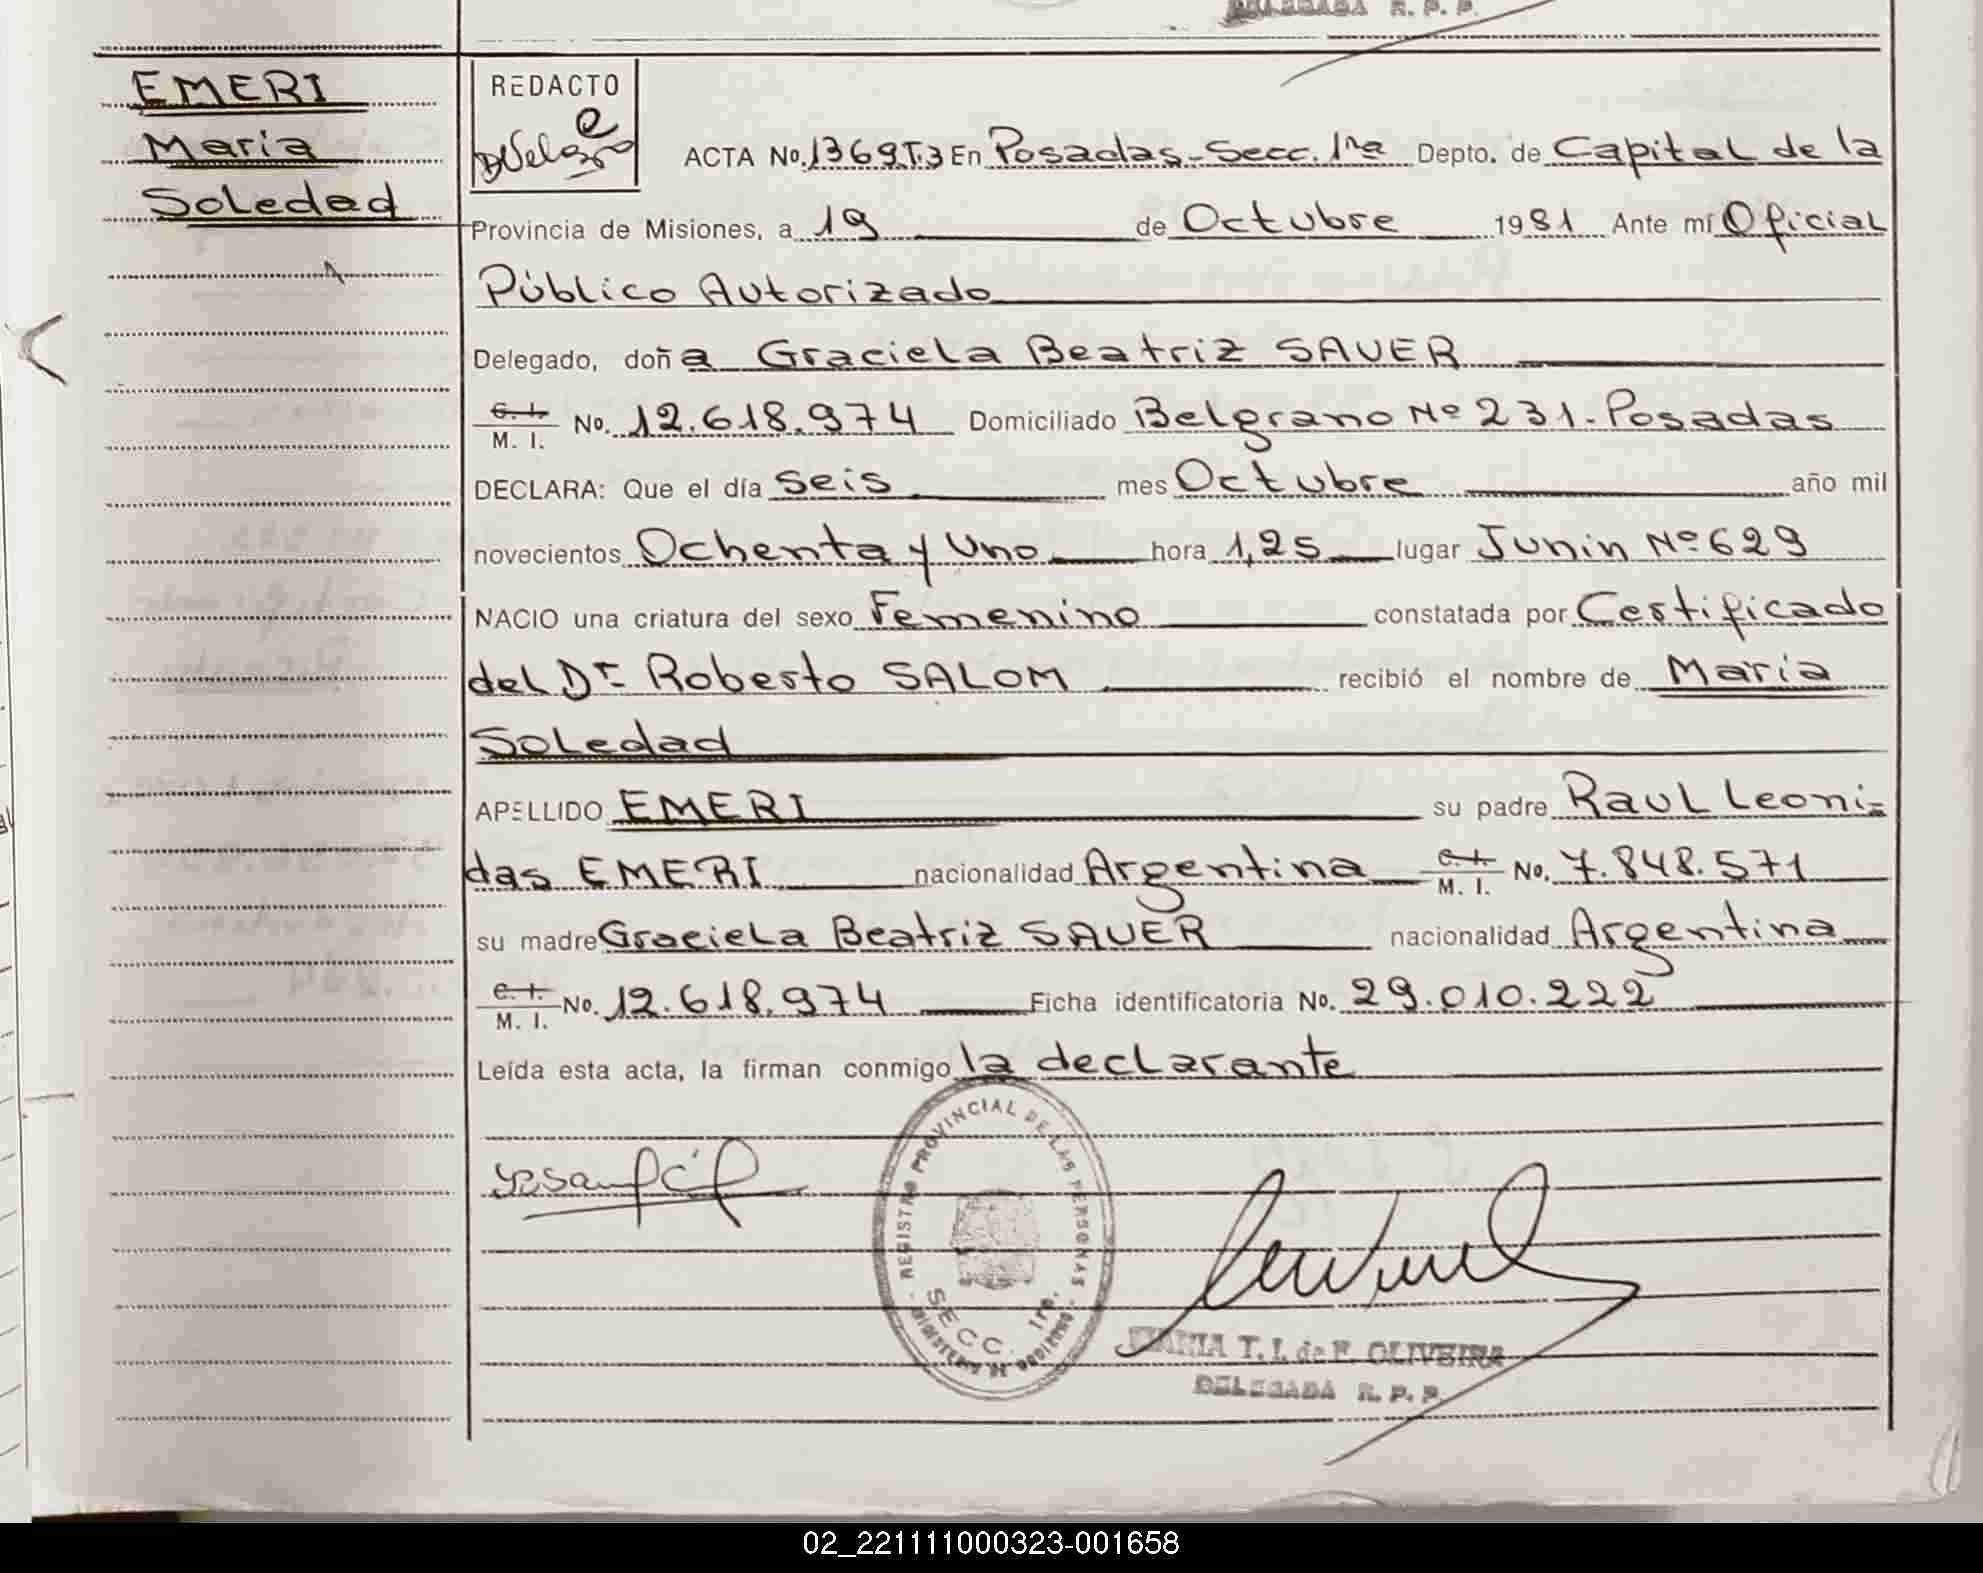 DELEGADA R. P. P.
EMERI
Maria
Soledad
REDACTO
ACTA No. 1369 T.3 En Posadas-Secc. 1ra Depto. de Capital de la
Provincia de Misiones, a 19 de Octubre 1981 Ante mí Oficial
Público Autorizado
Delegado, doña Graciela Beatriz SAUER
C. I. M. I. No. 12.618.974 Domiciliado Belgrano Nº 231-Posadas
DECLARA: Que el día seis mes Octubre año mil
novecientos Ochenta y Uno hora 1,25 lugar Junin Nº 629
NACIO una criatura del sexo Femenino constatada por Certificado
del Dr. Roberto SALOM recibió el nombre de Maria
Soledad
APELLIDO EMERI su padre Raul Leoni=
das EMERI nacionalidad Argentina C. I. M. I. No. 7.848.571
su madre Graciela Beatriz SAUER nacionalidad Argentina
C. I. M. I. No. 12.618.974 Ficha identificatoria No. 29.010.222
Leída esta acta, la firman conmigo la declarante
REGISTRO PROVINCIAL DE LAS PERSONAS
SECC. 1ra.
MARIA T. I. de F. OLIVEIRA
DELEGADA R. P. P.
02_221111000323-001658